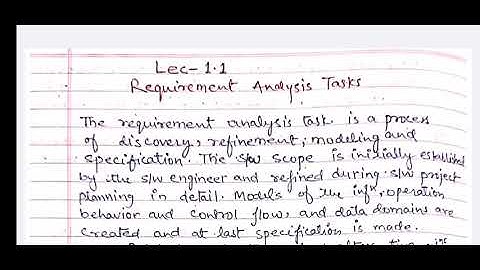 Lec-1.1
Requirement Analysis Tasks
The requirement analysis task is a process
of discovery, refinement, modeling and
specification. The s/w scope is initially established
by the s/w engineer and refined during s/w project
planning in detail. Models of the infⁿ, operation
behavior and control flow, and data domains are
created and at last specification is made.